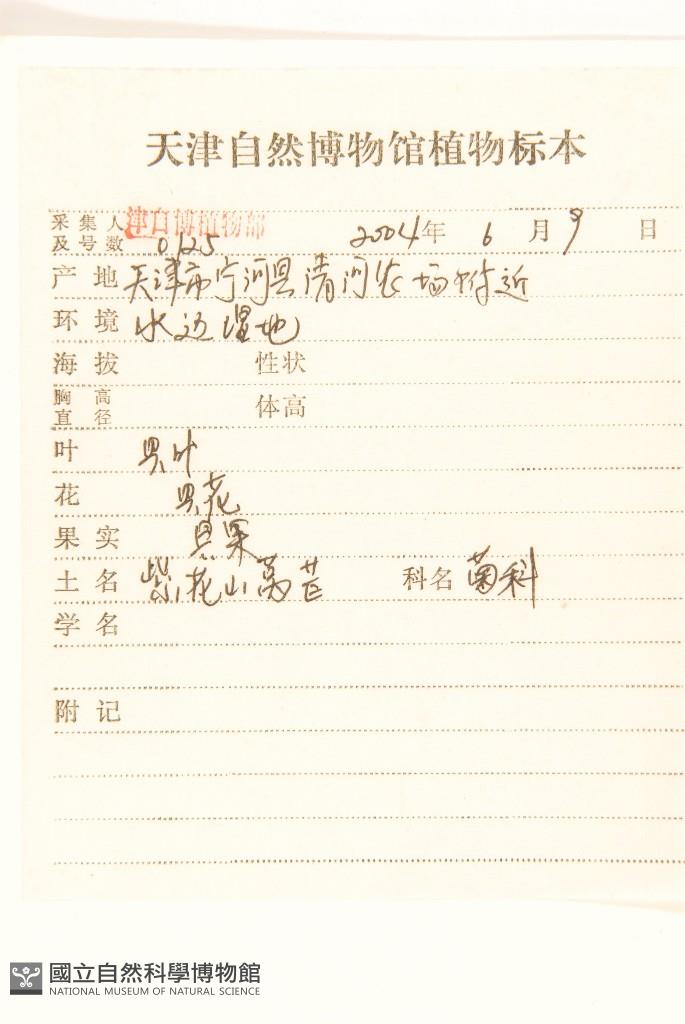 天津自然博物馆植物标本
采集人 津自博植物部
及号数 0125 2004年 6 月 9 日
产地 天津市宁河县清河农场附近
环境 水边湿地
海拔 性状
胸高
直径 体高
叶 具叶
花 具花
果实 具果
土名 紫花山莴苣 科名 菊科
学名
附记
國立自然科學博物館
NATIONAL MUSEUM OF NATURAL SCIENCE